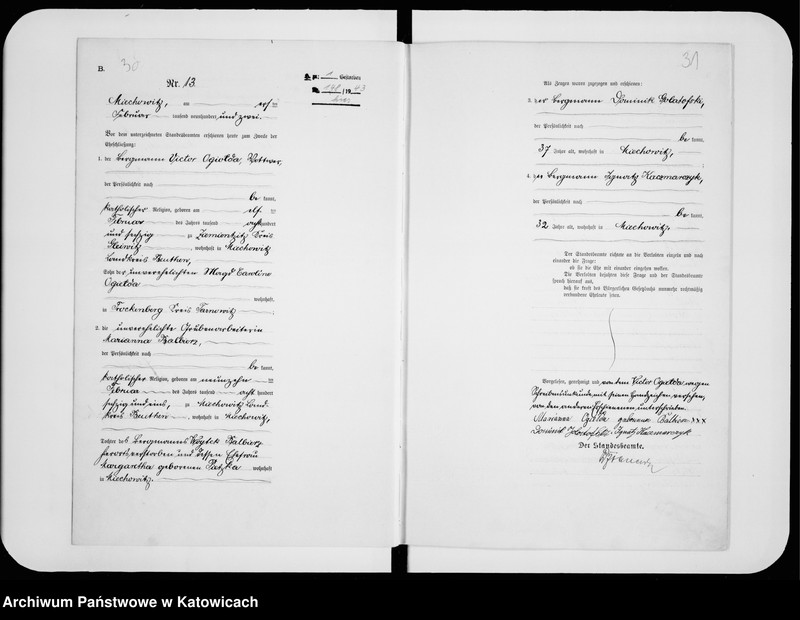 B.
30
Nr. 13.
1
141 / 1943
Machowitz, am elf ten
Februar tausend neunhundert und zwei.
Vor dem unterzeichneten Standesbeamten erschienen heute zum Zwecke der
Eheschließung:
1. der Bergmann Victor Ogiolda, Wittwer,
der Persönlichkeit nach
be kannt,
katholischer Religion, geboren am elf ten
Februar des Jahres tausend acht hundert
und sechzig zu Ziemientzitz Kreis
Gleiwitz, wohnhaft in Machowitz
Landkreis Beuthen,
Sohn der unverehelichten Magd Caroline
Ogiolda
wohnhaft
in Trockenberg Kreis Tarnowitz
2. die unverehelichte Grubenarbeiterin
Marianna Balbierz,
der Persönlichkeit nach
be kannt,
katholischer Religion, geboren am neunzehn ten
Februar des Jahres tausend acht hundert
sechzig und eins, zu Machowitz Land-
kreis Beuthen, wohnhaft in Machowitz,
Tochter des Bergmanns Woytek Balbierz
verstorben und dessen Ehefrau
Margaretha geborenen wohnhaft
in Machowitz.
31
Als Zeugen waren zugezogen und erschienen:
3. der Bergmann Dominik
der Persönlichkeit nach
be kannt,
37 Jahre alt, wohnhaft in Machowitz,
4. der Bergmann Ignatz Kaczmarczyk,
der Persönlichkeit nach
be kannt,
32 Jahre alt, wohnhaft in Machowitz.
Der Standesbeamte richtete an die Verlobten einzeln und nach
einander die Frage:
ob sie die Ehe mit einander eingehen wollen.
Die Verlobten bejahten diese Frage und der Standesbeamte
sprach hierauf aus,
daß sie kraft des Bürgerlichen Gesetzbuchs nunmehr rechtmäßig
verbundene Eheleute seien.
Vorgelesen, genehmigt und von dem Victor Ogiolda wegen
Schreibensunkunde mit seinem Handzeichen versehen,
von den anderen Erschienenen unterschrieben
Marianna Ogiolda geborene Balbierz XXX
Dominik Ignatz Kaczmarczyk
Der Standesbeamte.
Archiwum Państwowe w Katowicach